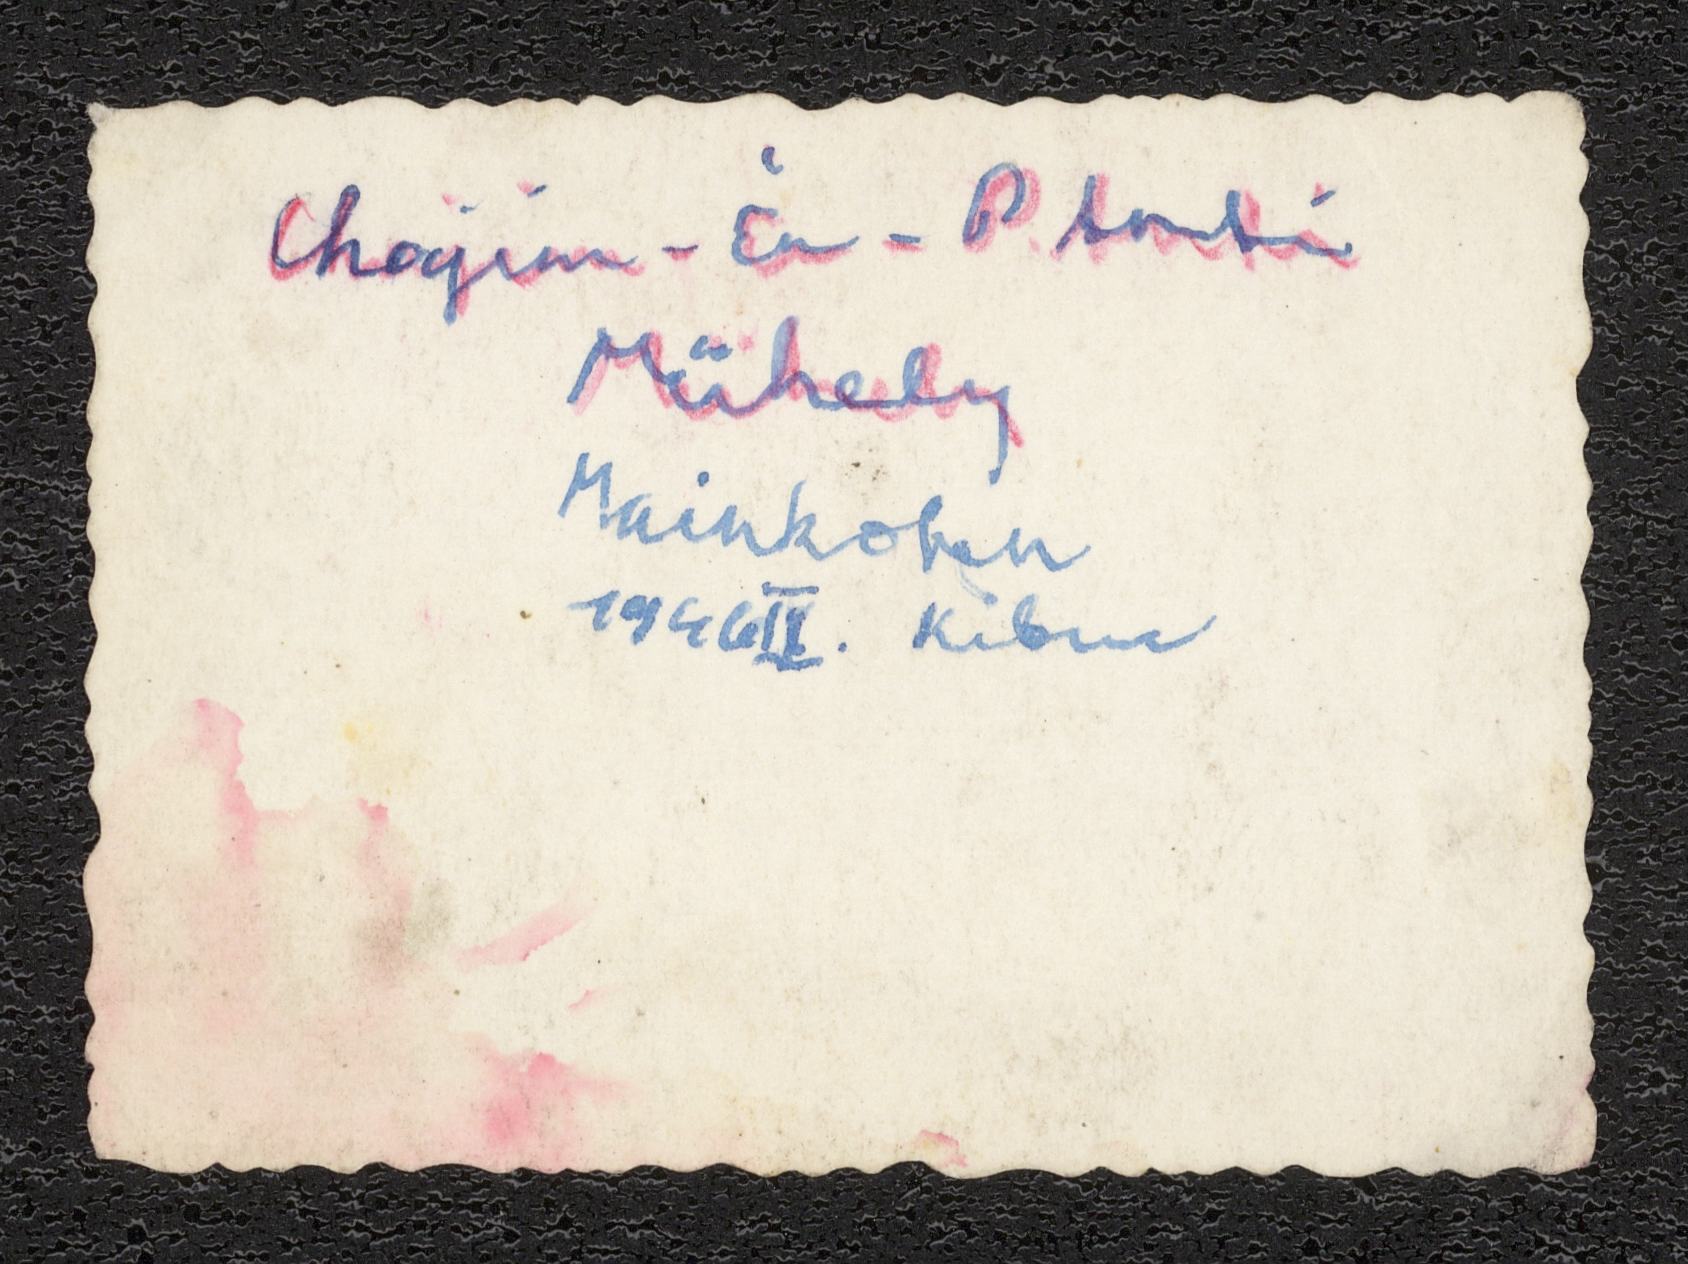 Chajim - Én - P. Antí
Műhely
Mainkofen
1946 II. Kibuc